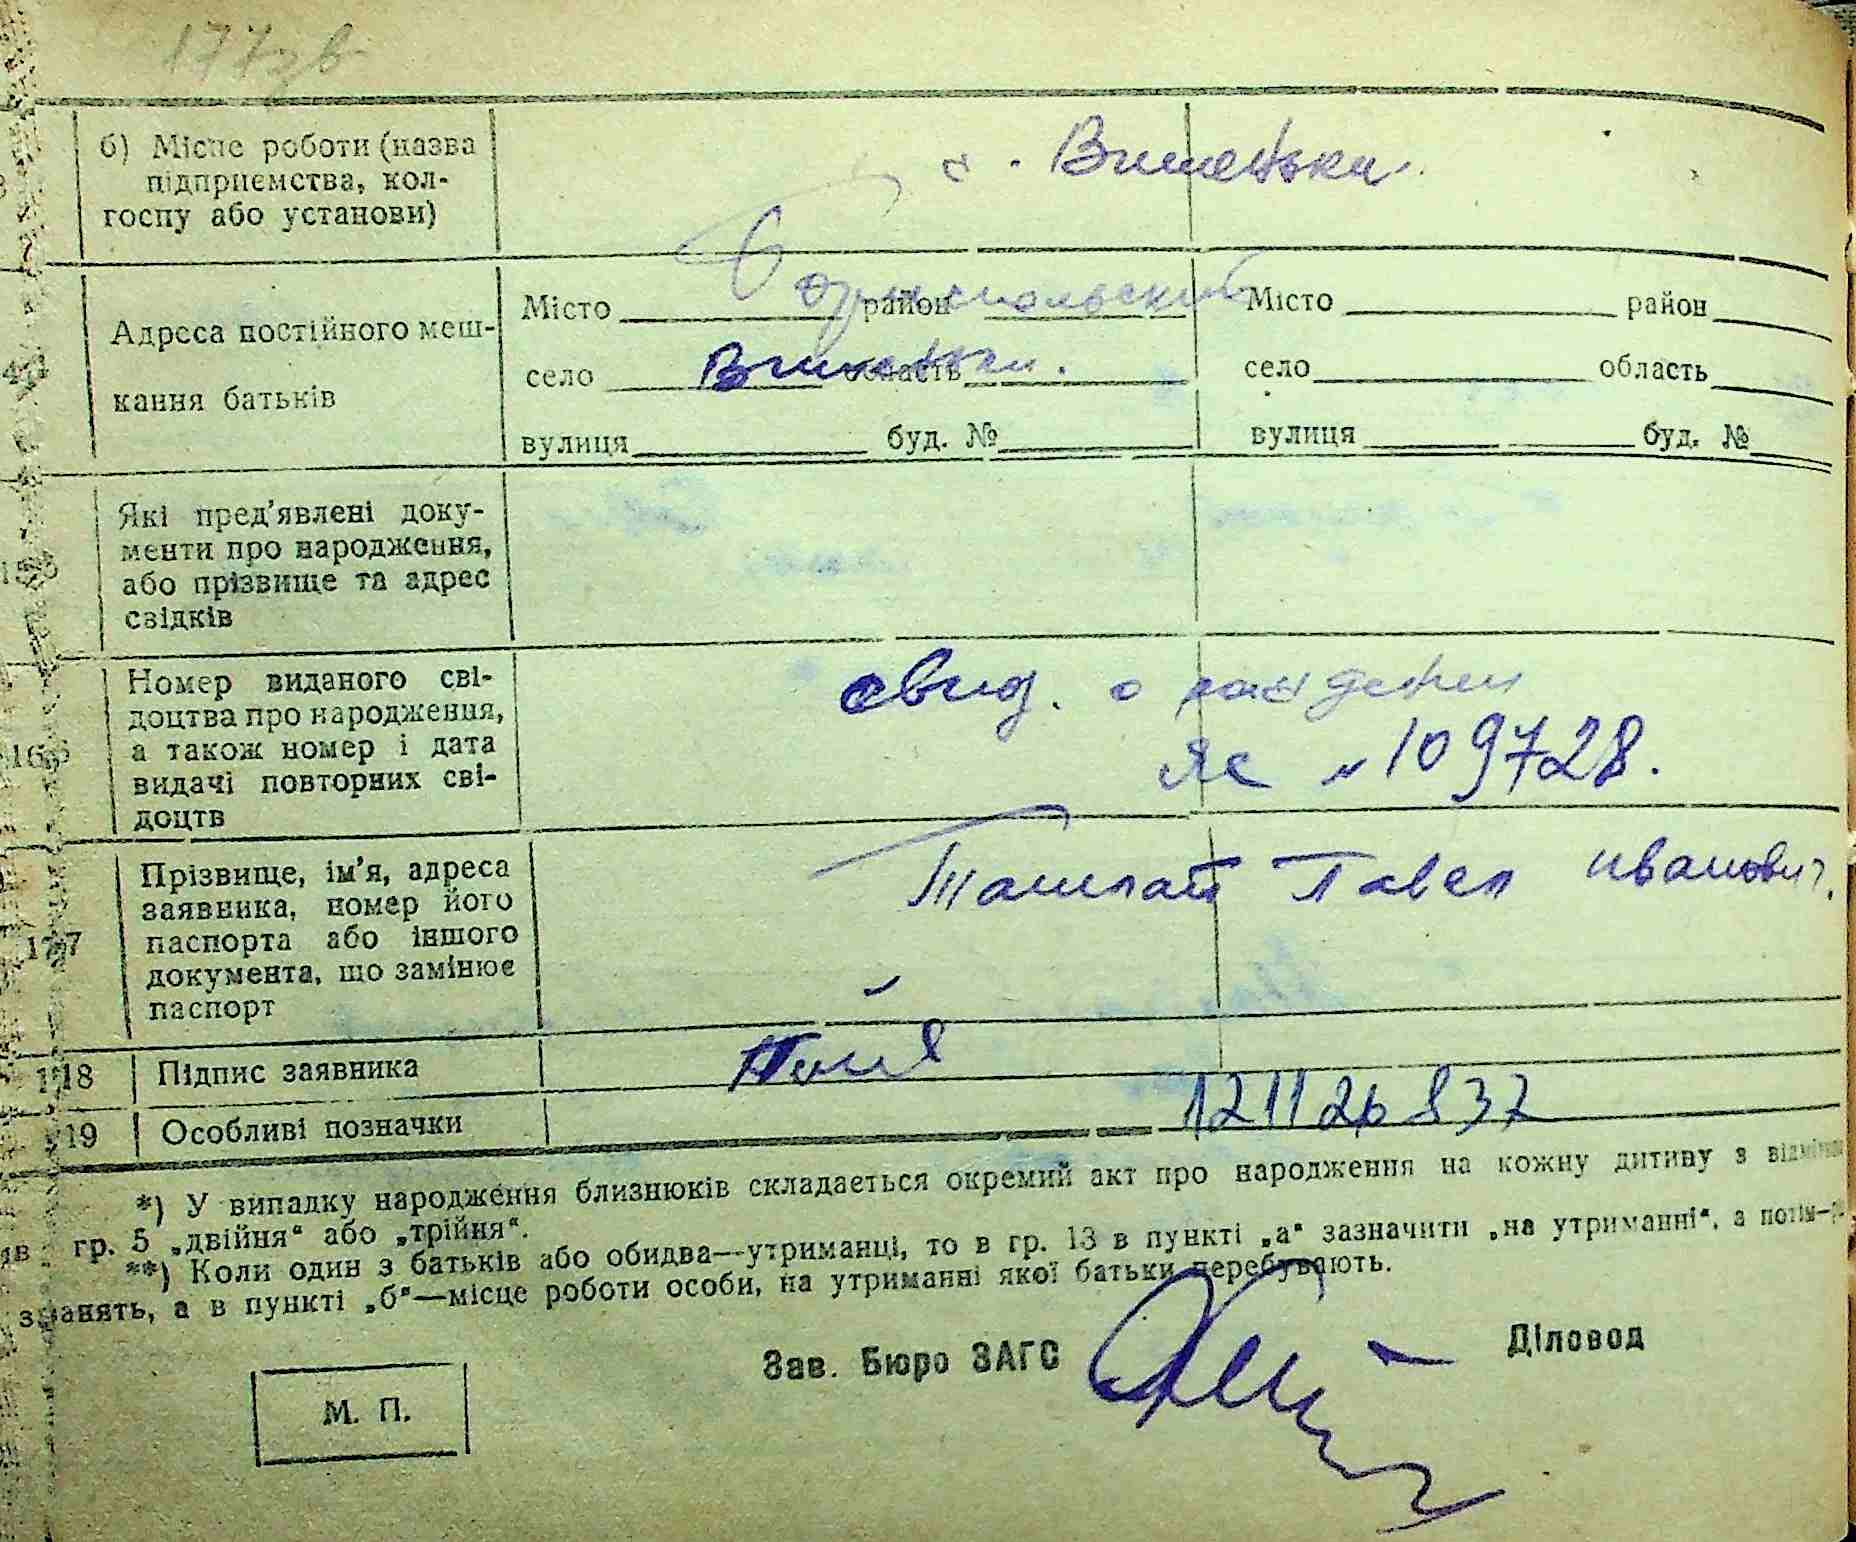 177зв
б) Місце роботи (назва
підприємства, кол-
госпу або установи)
с. Вишеньки
44
Адреса постійного меш-
кання батьків
Місто район Бориспольский
село Вишеньки. область
вулиця буд. №
Місто район
село область
вулиця буд. №
Які пред'явлені доку-
менти про народження,
або прізвище та адрес
свідків
Номер виданого сві-
доцтва про народження,
а також номер і дата
видачі повторних сві-
доцтв
свид. о рождении
яс № 109728.
Прізвище, ім'я, адреса
заявника, номер його
паспорта або іншого
документа, що замінює
паспорт
Павел Иванович.
18 Підпис заявника
19 Особливі позначки
*) У випадку народження близнюків складається окремий акт про народження на кожну дитину з
гр. 5 „двійня“ або „трійня“.
**) Коли один з батьків або обидва—утриманці, то в гр. 13 в пункті „а“ зазначити „на утриманні“, а потім
занять, а в пункті „б“—місце роботи особи, на утриманні якої батьки перебувають.
Зав. Бюро ЗАГС
Діловод
М. П.